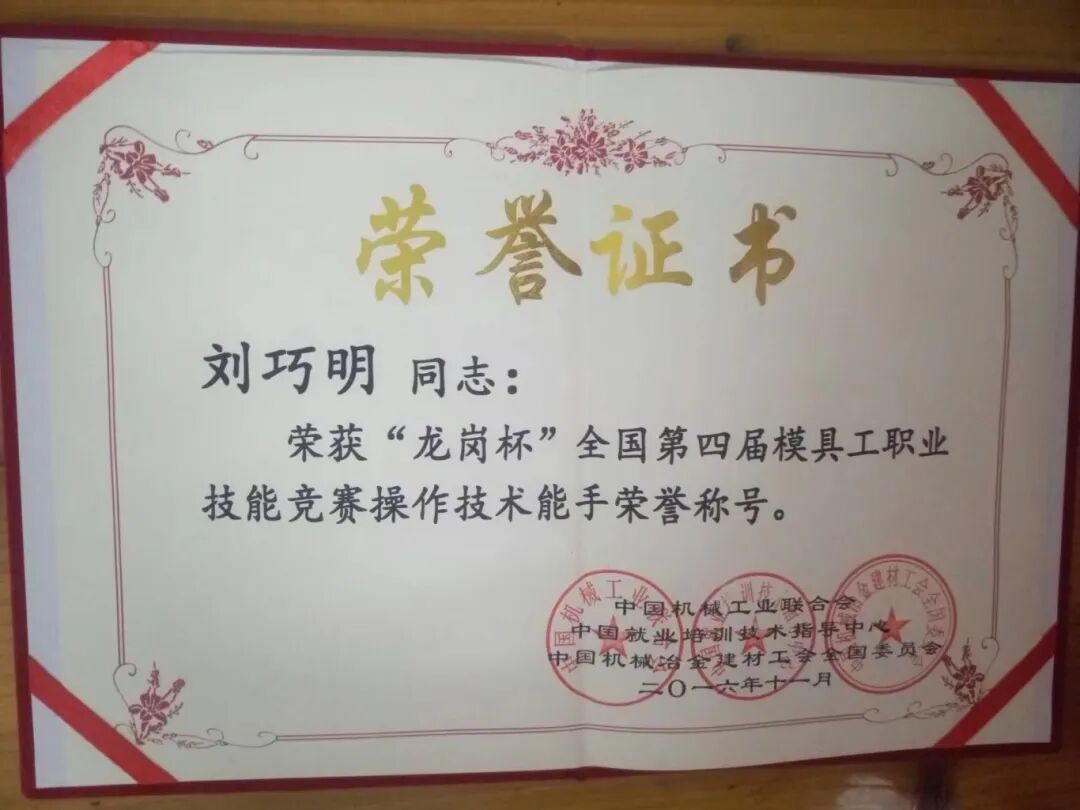 荣誉证书
刘巧明 同志：
荣获“龙岗杯”全国第四届模具工职业
技能竞赛操作技术能手荣誉称号。
中国机械工业联合会
中国就业培训技术指导中心
中国机械冶金建材工会全国委员会
二〇一六年十一月